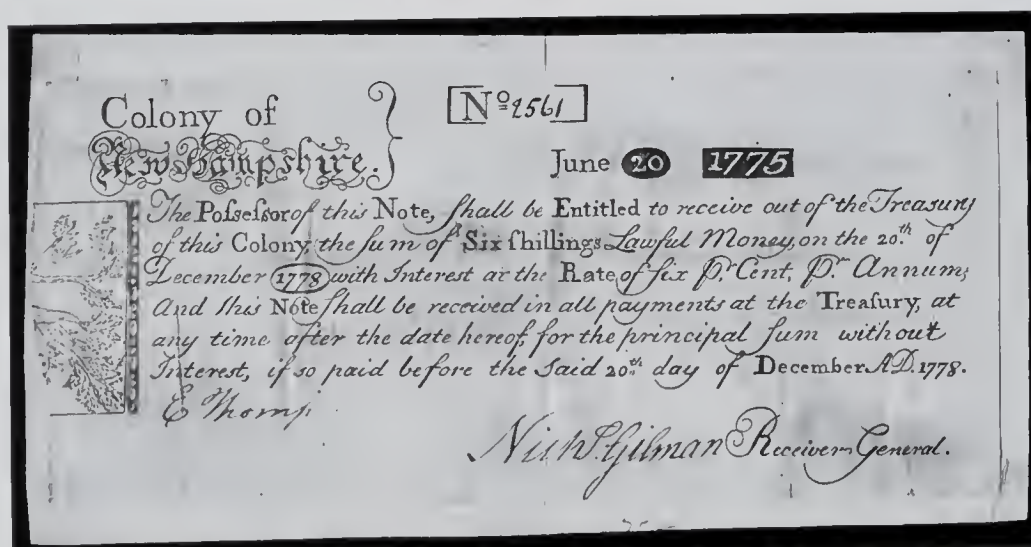 Colony of
New Hampshire.
Nº 2561
June 20 1775
The Poſseſsor of this Note, ſhall be Entitled to receive out of the Treasury
of this Colony the ſum of Six ſhillings Lawful Money, on the 20.th of
December 1778 with Interest at the Rate of ſix Pr. Cent, Pr. Annum;
And this Note ſhall be received in all payments at the Treaſury, at
any time after the date hereof, for the principal ſum without
Interest, if so paid before the Said 20th day of December AD. 1778.
E Thomp
Nichs. Gilman Receiver General.